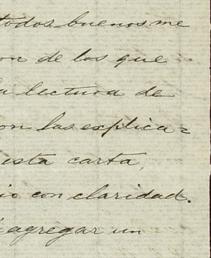 todos buenos me
on de los que
la lectura de
on las explica=
esta carta,
io con claridad.
agregar un